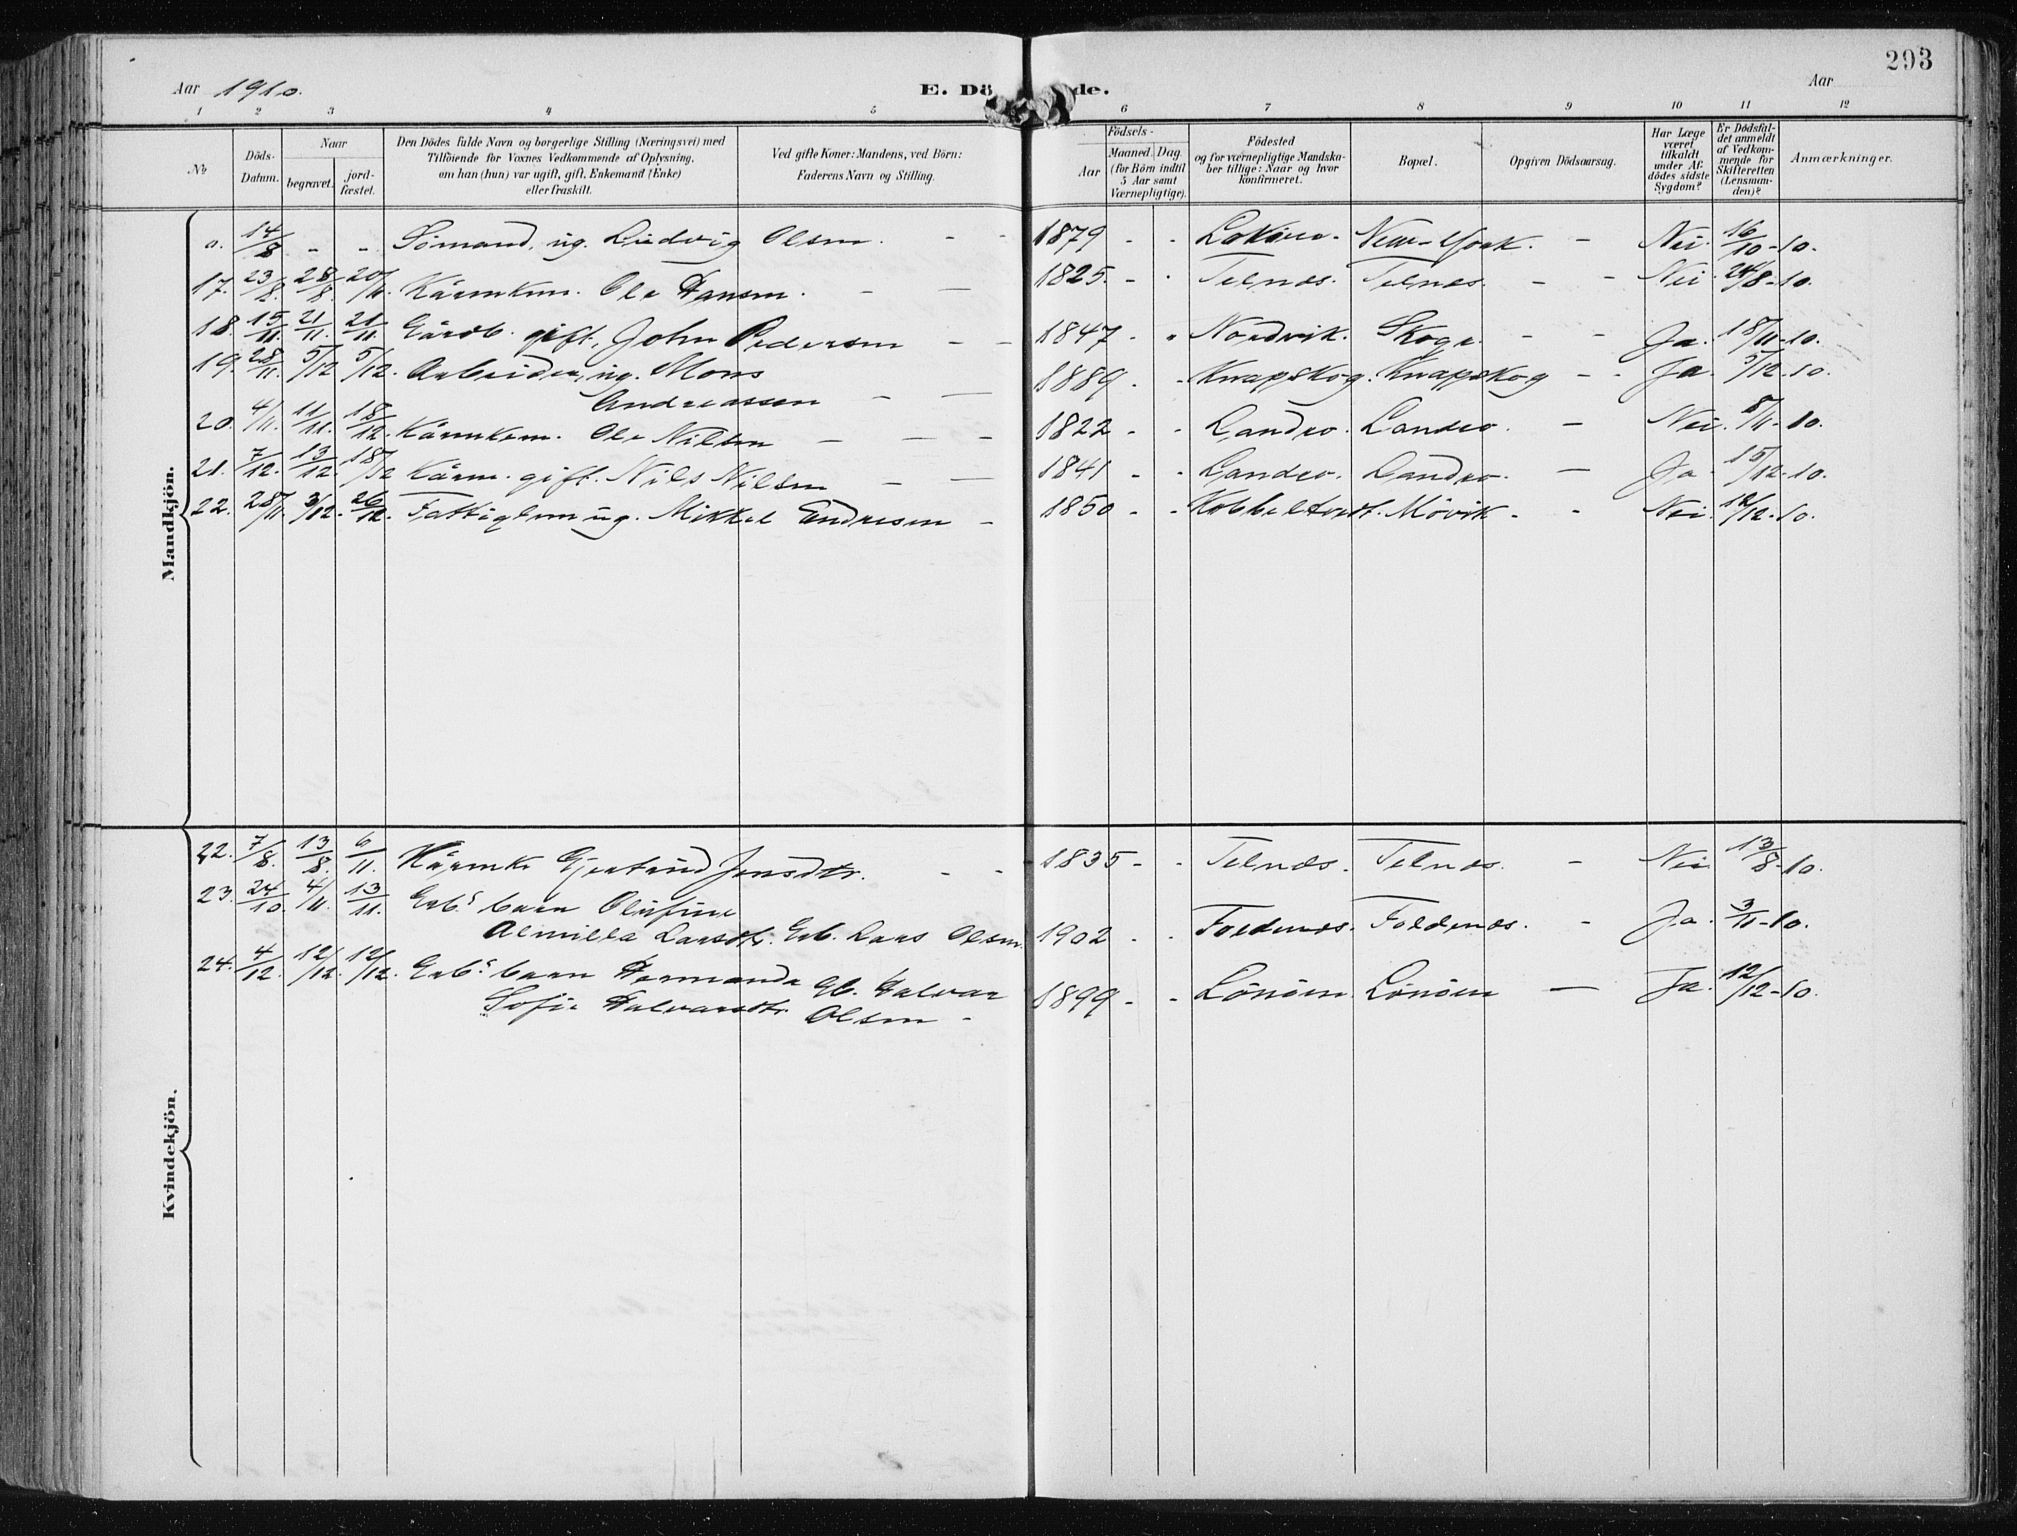 293
Aar 1910. E. Dö de. Aar
1 2 3 4 5 6 7 8 9 10 11 12
No
Döds-Datum.
Naar
begravet.
jord-fæstet.
Den Dödes fulde Navn og borgerlige Stilling (Næringsvei) med
Tilföiende for Voxnes Vedkommende af Oplysning,
om han (hun) var ugift, gift, Enkemand (Enke)
eller fraskilt.
Ved gifte Koner: Mandens, ved Börn:
Faderens Navn og Stilling.
Födsels-
Aar
Maaned. Dag.
(for Börn indtil
5 Aar samt
Værnepligtige).
Födested
og for værnepligtige Mandska-
ber tillige: Naar og hvor
konfirmeret.
Bopæl.
Opgiven Dödsaarsag.
Har Læge
været
tilkaldt
under Af-
dödes sidste
Sygdom?
Er Dödsfal-
det anmeldt
af Vedkom-
mende for
Skifteretten
(Lensman-
den)?
Anmærkninger.
Mandkjön.
a. 14/8 - - Sömand, ug. Ludvig Olsen. - - 1879 - - Loköen. New-York. - Nei. 16/10-10.
17. 23/8. 28/8. 20/11 Kårmkm. Ole Hansen. - - 1825. - - Telnes. Telnes. - - Nei 24/8-10.
18. 15/11. 21/11. 21/11 Gårdb. gift, John Pedersen - - 1847 - - Nordvik. Skoge - - Ja. 18/11-10.
19. 28/11. 5/12 5/12. Arbeider, ug. Mons
Andreassen - - 1889. - - Knapskog. Knapskog - - Ja. 5/12-10.
20. 4/11. 11/11. 18/12. Kårmkm. Ole Nilsen - - - 1822 - - Landro. Landro. - Nei. 8/11-10.
21. 7/12. 13/12 18/12 Kårm. gift. Nils Nilsen - - 1841 - - Landro. Landro. - Ja. 15/12-10.
22. 28/11. 3/12. 26/12. Fattiglem ug. Mikkel Endresen - 1850 - - Kobbeltvedt. Mövik. - - Nei. 12/12-10.
Kvindekjön.
22. 7/8. 13/8. 6/11. Kårmke Gjertrud Jensdtr. - - 1835 - - Telnes. Telnes. - Nei 13/8-10.
23. 24/10. 4/11. 13/11. Grbs barn Olufine
Almilla Larsdtr. Grb. Lars Olsen. 1902 - - Foldenes. Foldenes. - Ja. 3/11-10.
24. 4/12. 12/12. 12/12. Grbs barn Hermanda Gb. Halvar
Sofie Halvarsdtr. Olsen - 1899 - - Lönöen. Lönöen - Ja. 12/12-10.